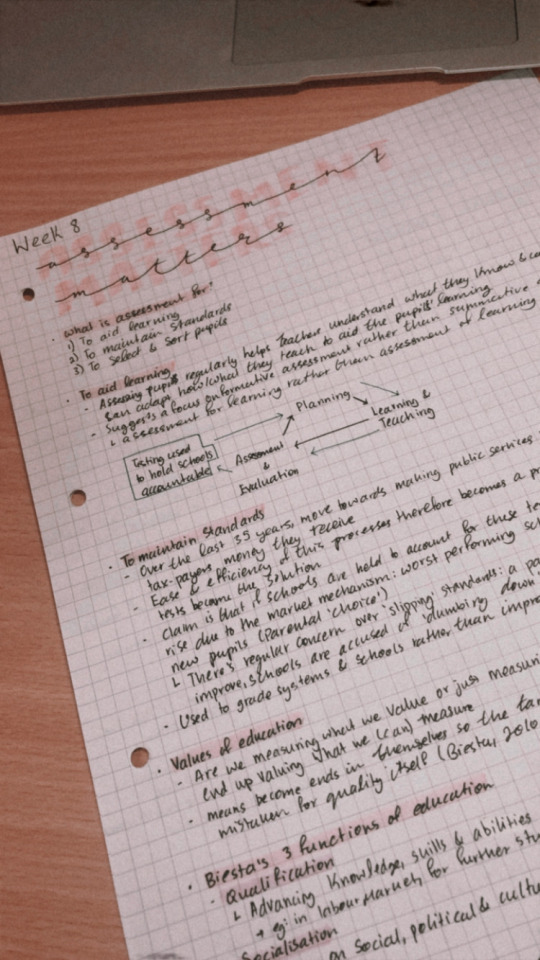 Week 8
assessment
matters
• What is assessment for?
1) To aid learning
2) To maintain standards
3) To select & sort pupils
• To aid learning
- Assessing pupils regularly helps teachers understand what they know &
can adapt how/what they teach to aid the pupils' learning
- Suggests a focus on formative assessment rather than summative
↳ assessment for learning rather than assessment of learning
Planning
Learning &
Teaching
Assessment
&
Evaluation
Testing used
to hold schools
accountable
• To maintain standards
- Over the last 35 years, move towards making public services
tax-payers money they receive
- Ease & efficiency of this processes therefore becomes a
tests become the solution
- Claim is that if schools are held to account for these
rise due to the market mechanism: worst performing
new pupils (parental 'choice')
↳ There's regular concern over 'slipping' standards: a
improve, schools are accused of 'dumbing down
- Used to grade systems & schools rather than
• Values of education
- Are we measuring what we value or just
end up valuing what we (can) measure
- means become ends in themselves so the
mistaken for quality itself (Biesta, 2010
• Biesta's 3 functions of education
- Qualification
↳ Advancing knowledge, skills & abilities
→ eg: in labour market, for further
Socialisation
on social, political &